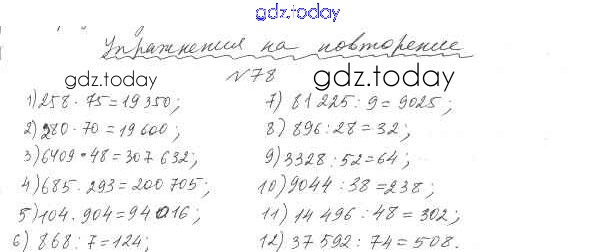 gdz.today
Упражнения на повторение
gdz.today
№78
gdz.today
1) 258 · 75 = 19 350;
2) 280 · 70 = 19 600;
3) 6409 · 48 = 307 632;
4) 685 · 293 = 200 705;
5) 104 · 904 = 94 016;
6) 868 : 7 = 124;
7) 81 225 : 9 = 9025;
8) 896 : 28 = 32;
9) 3328 : 52 = 64;
10) 9044 : 38 = 238;
11) 14 496 : 48 = 302;
12) 37 592 : 74 = 508.